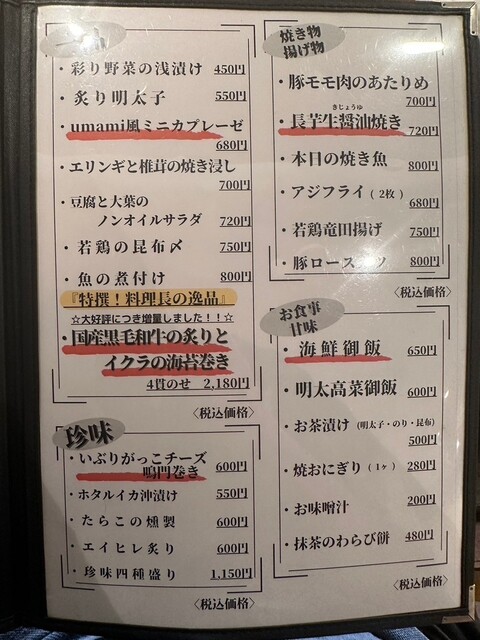 一品
・彩り野菜の浅漬け 450円
・炙り明太子 550円
・umami風ミニカプレーゼ
680円
・エリンギと椎茸の焼き浸し
700円
・豆腐と大葉の
ノンオイルサラダ 720円
・若鶏の昆布〆 750円
・魚の煮付け 800円
『特撰！料理長の逸品』
☆大好評につき増量しました！！☆
・国産黒毛和牛の炙りと
イクラの海苔巻き
4貫のせ 2,180円
〈税込価格〉
珍味
・いぶりがっこチーズ
鳴門巻き 600円
・ホタルイカ沖漬け 550円
・たらこの燻製 600円
・エイヒレ炙り 600円
・珍味四種盛り 1,150円
〈税込価格〉
焼き物
揚げ物
・豚モモ肉のあたりめ
700円
きじょうゆ
・長芋生醤油焼き 720円
・本日の焼き魚 800円
・アジフライ（2枚） 680円
・若鶏竜田揚げ 750円
・豚ロースカツ 800円
〈税込価格〉
お食事
甘味
・海鮮御飯 650円
・明太高菜御飯 600円
・お茶漬け（明太子・のり・昆布）
500円
・焼おにぎり（1ヶ） 280円
・お味噌汁 200円
・抹茶のわらび餅 480円
〈税込価格〉